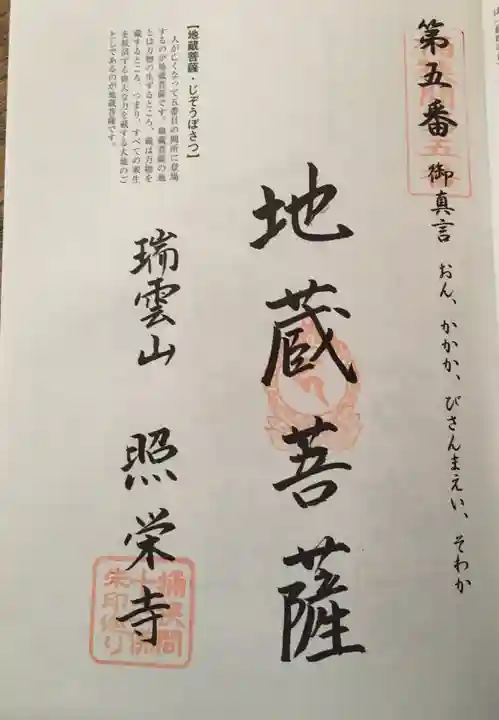 第五番 御真言 おん、かかか、びさんまえい、そわか
地蔵菩薩
瑞雲山 照栄寺
【地蔵菩薩・じぞうぼさつ】
人が亡くなって五番目の関所に登場
するものが地蔵菩薩です。地蔵菩薩の地
とは万物の生ずるところ、蔵は万物を
蔵するところ、つまり、すべての衆生
を救済する偉大な力を蔵する大地のご
としであるのが地蔵菩薩です。
桶狭間
十三佛
朱印巡り